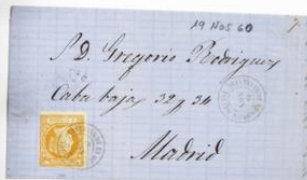 19 Nov 60
S. D. Gregorio Rodriguez
Caba baja, 32 y 34
Madrid